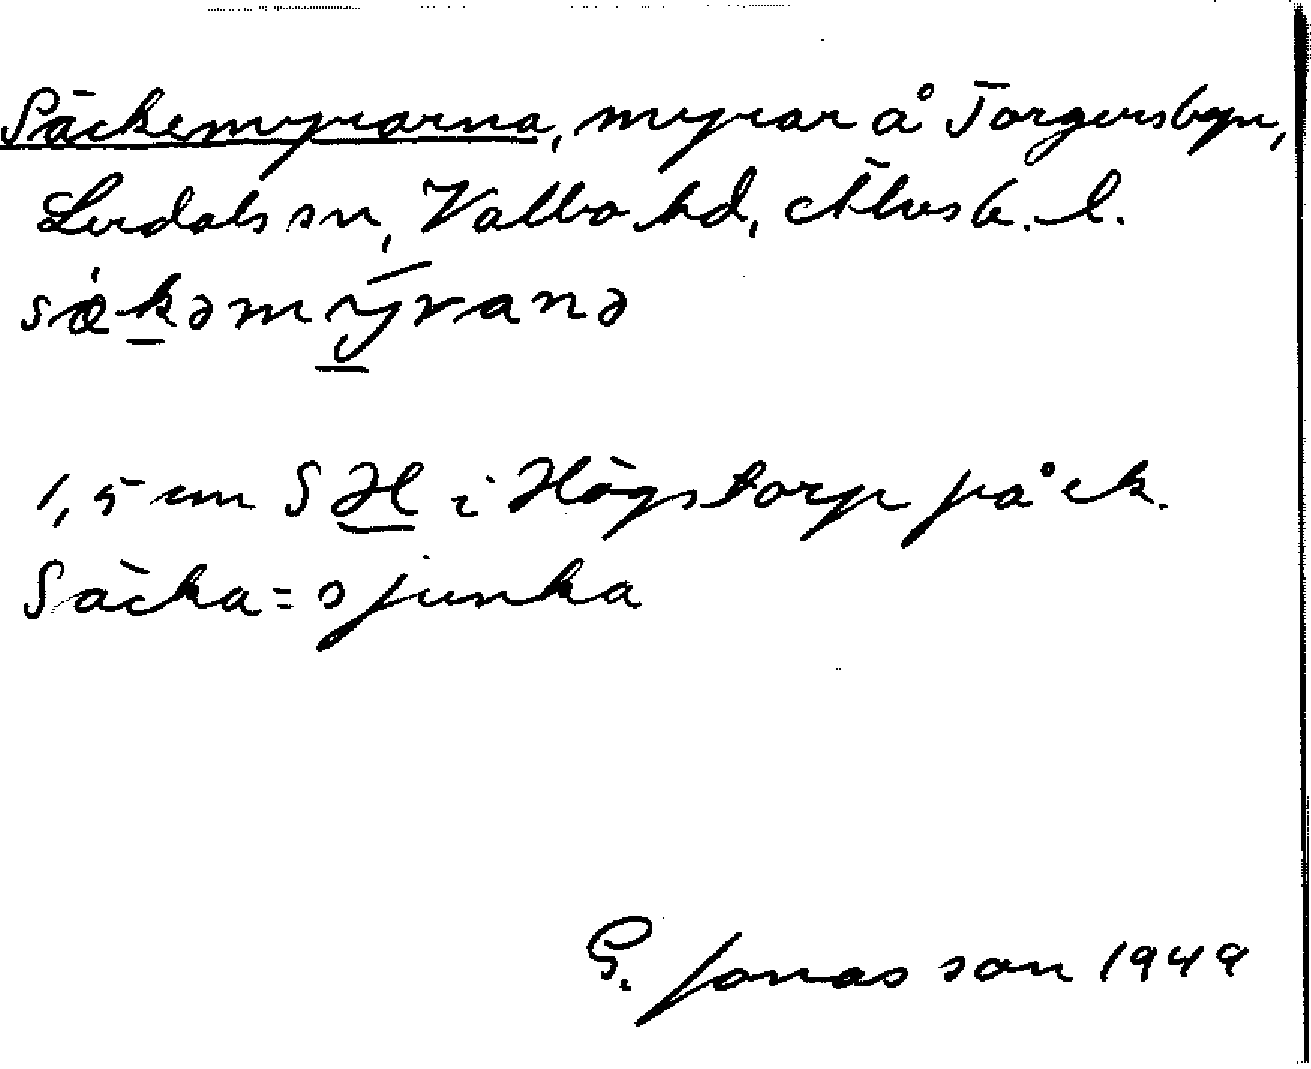 Säckemyrarna, myrar å Torgersbyn,
Lerdals sn, Valbo hd, Älvsb. l.
sæ̀kəmỳranə
1,5 cm S H i Högstorp på ek.
Säcka = sjunka
G. Jonasson 1949